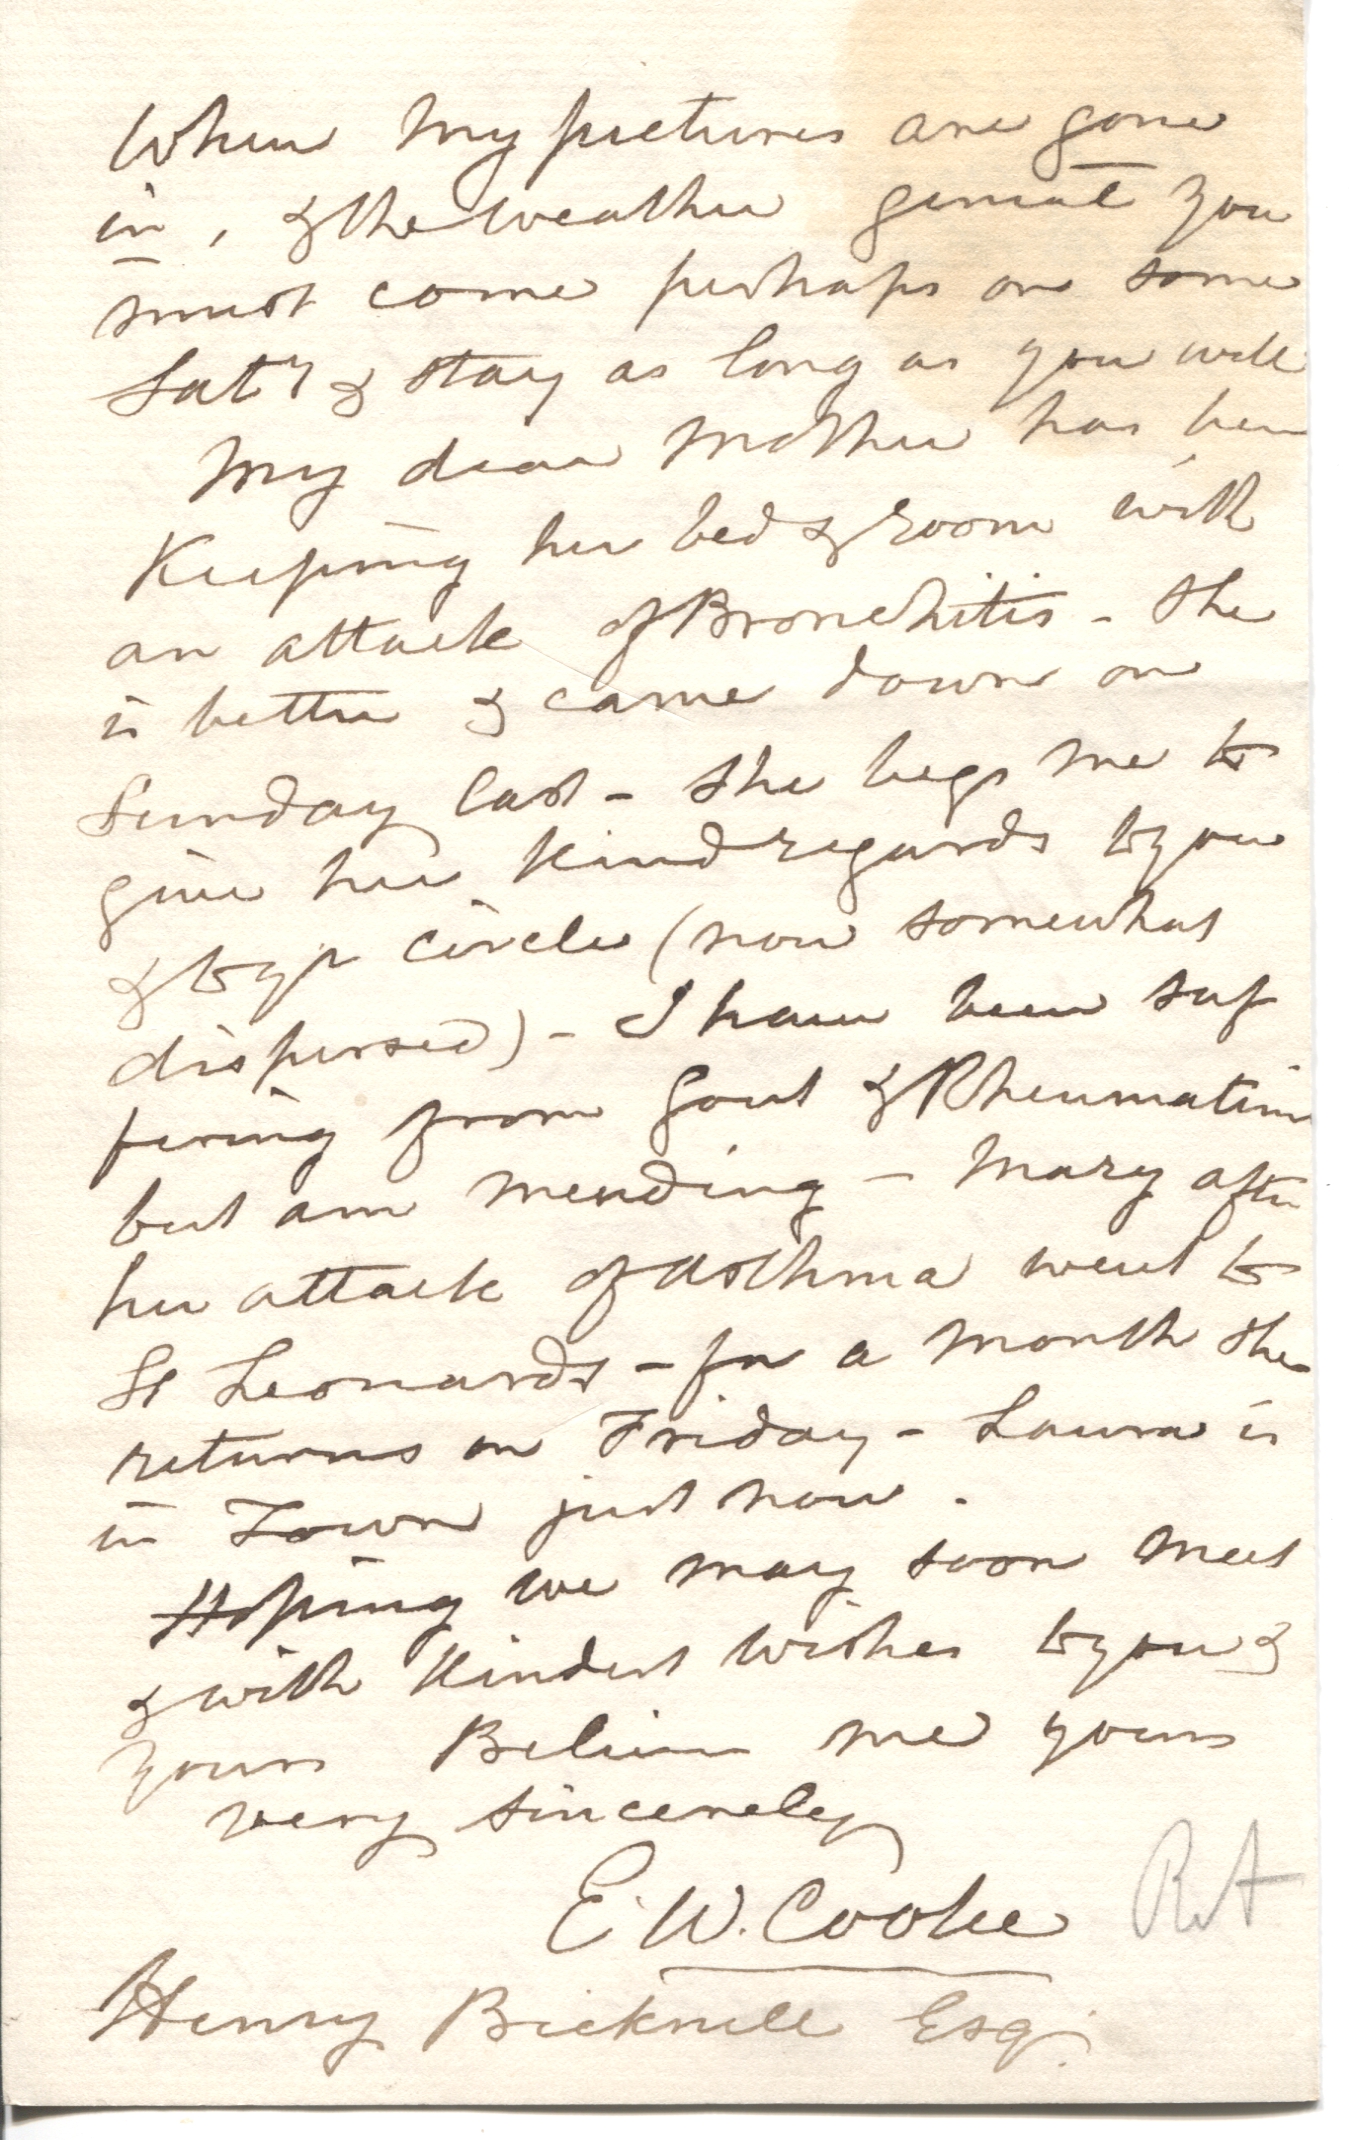 When my pictures are gone
in, & the weather genial you
must come perhaps on some
Saty & stay as long as you will
My dear Mother has been
Keeping her bed & room with
an attack of Bronchitis - She
is better & came down on
Sunday last - She begs me to
give her kind regards to you
& to yr circle (now somewhat
dispersed) - I have been suf
fering from Gout & Rheumatism
but am mending - Mary after
her attack of Asthma went to
St Leonards - for a month she
returns on Friday - Laura is
in Town just now.
Hoping we may soon meet
& with kindest wishes to you &
yours Believe me yours
very sincerely
E. W. Cooke
Henry Bicknell Esq.